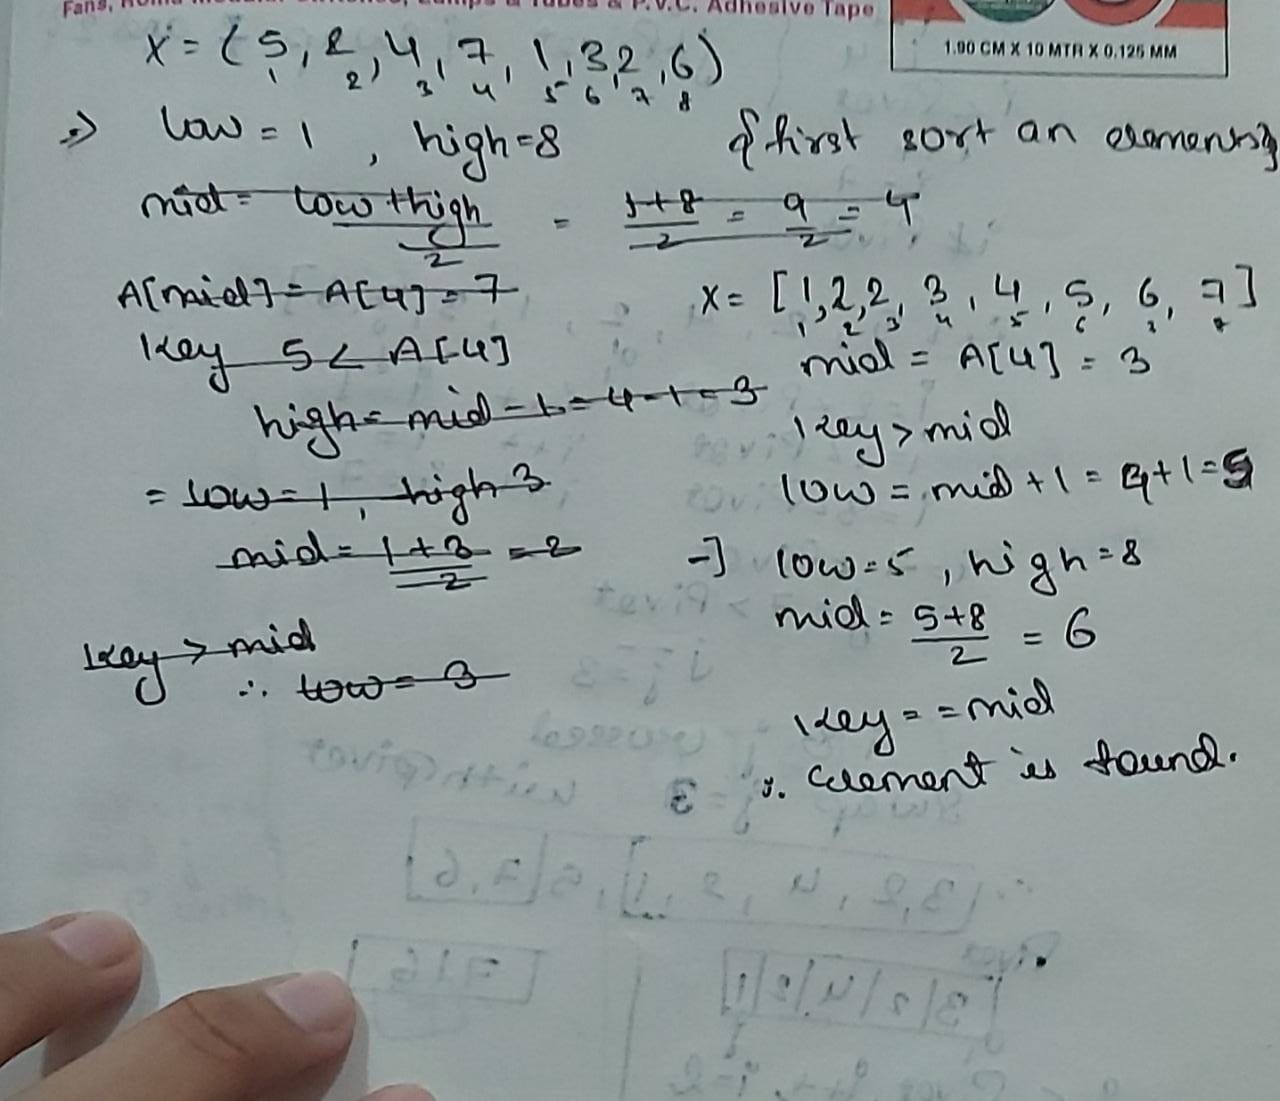 Fans, Roma Modular Switches, Lamps & Tubes & P.V.C. Adhesive Tape
1.90 CM X 10 MTR X 0.125 MM
X = (5, 2, 4, 7, 1, 3, 2, 6)
1 2 3 4 5 6 7 8
=> low = 1 , high = 8 {first sort an elements}
mid = low + high / 2 = 1+8 / 2 = 9 / 2 = 4
A[mid] = A[4] = 7
key 5 < A[4]
high = mid - 1 = 4 - 1 = 3
= low = 1, high 3
mid = 1+3 / 2 = 2
key > mid
∴ low = 3
X = [1, 2, 2, 3, 4, 5, 6, 7]
1 2 3 4 5 6 7 8
mid = A[4] = 3
key > mid
low = mid + 1 = 4 + 1 = 5
-] low = 5 , high = 8
mid = 5+8 / 2 = 6
key = = mid
∴ element is found.